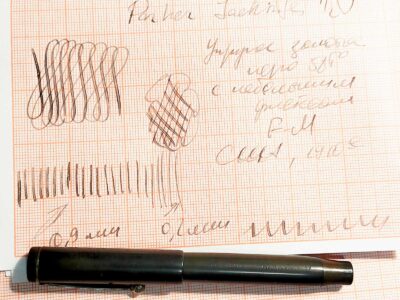 Parker Jackknife 20
Упругое золотое
перо
с небольшим
F-M
США, 1910е
0,9 мм
0,2 мм